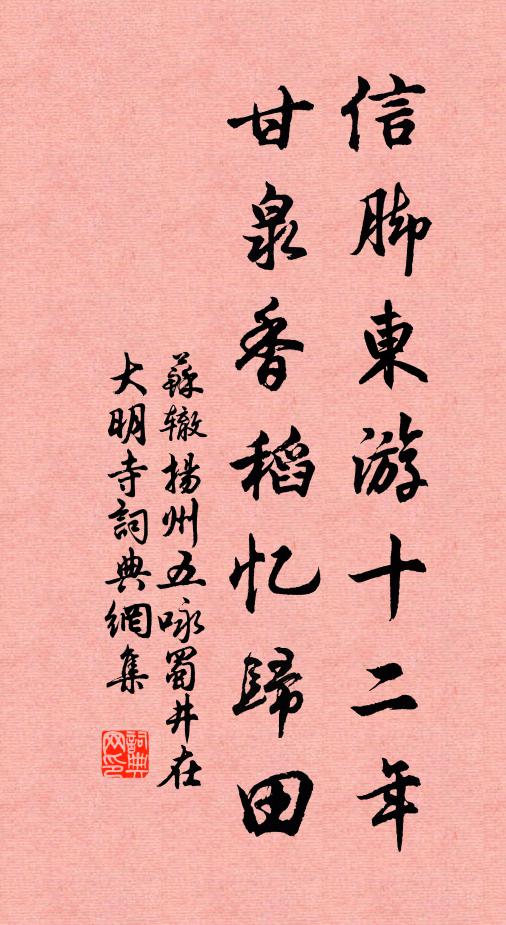 信脚東游十二年
甘泉香稻忆歸田
蘇辙揚州五咏蜀井在
大明寺詞典網集
詞典网印